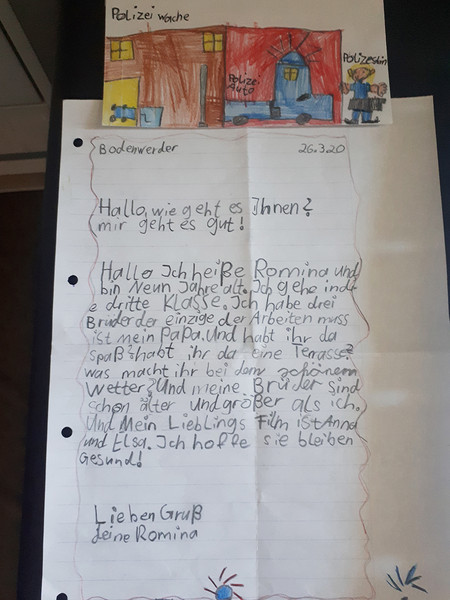 Polizei wache
Polizei
Auto
Polizestin
Bodenwerder 26.3.20
Hallo, wie geht es Ihnen?
mir geht es gut!
Hallo Ich heiße Romina und
bin Neun Jahre alt. Ich gehe in d
e dritte Klasse. Ich habe drei
Brüder der einzige der Arbeiten muss
ist mein PaPa. Und habt ihr da
spaß? habt ihr da eine Terasse?
was macht ihr bei dem schönem
Wetter? Und meine Brüder sind
schon älter und größer als ich.
Und Mein Lieblings Film ist Anna
und Elsa. Ich hoffe sie bleiben
Gesund!
Lieben Gruß
deine Romina